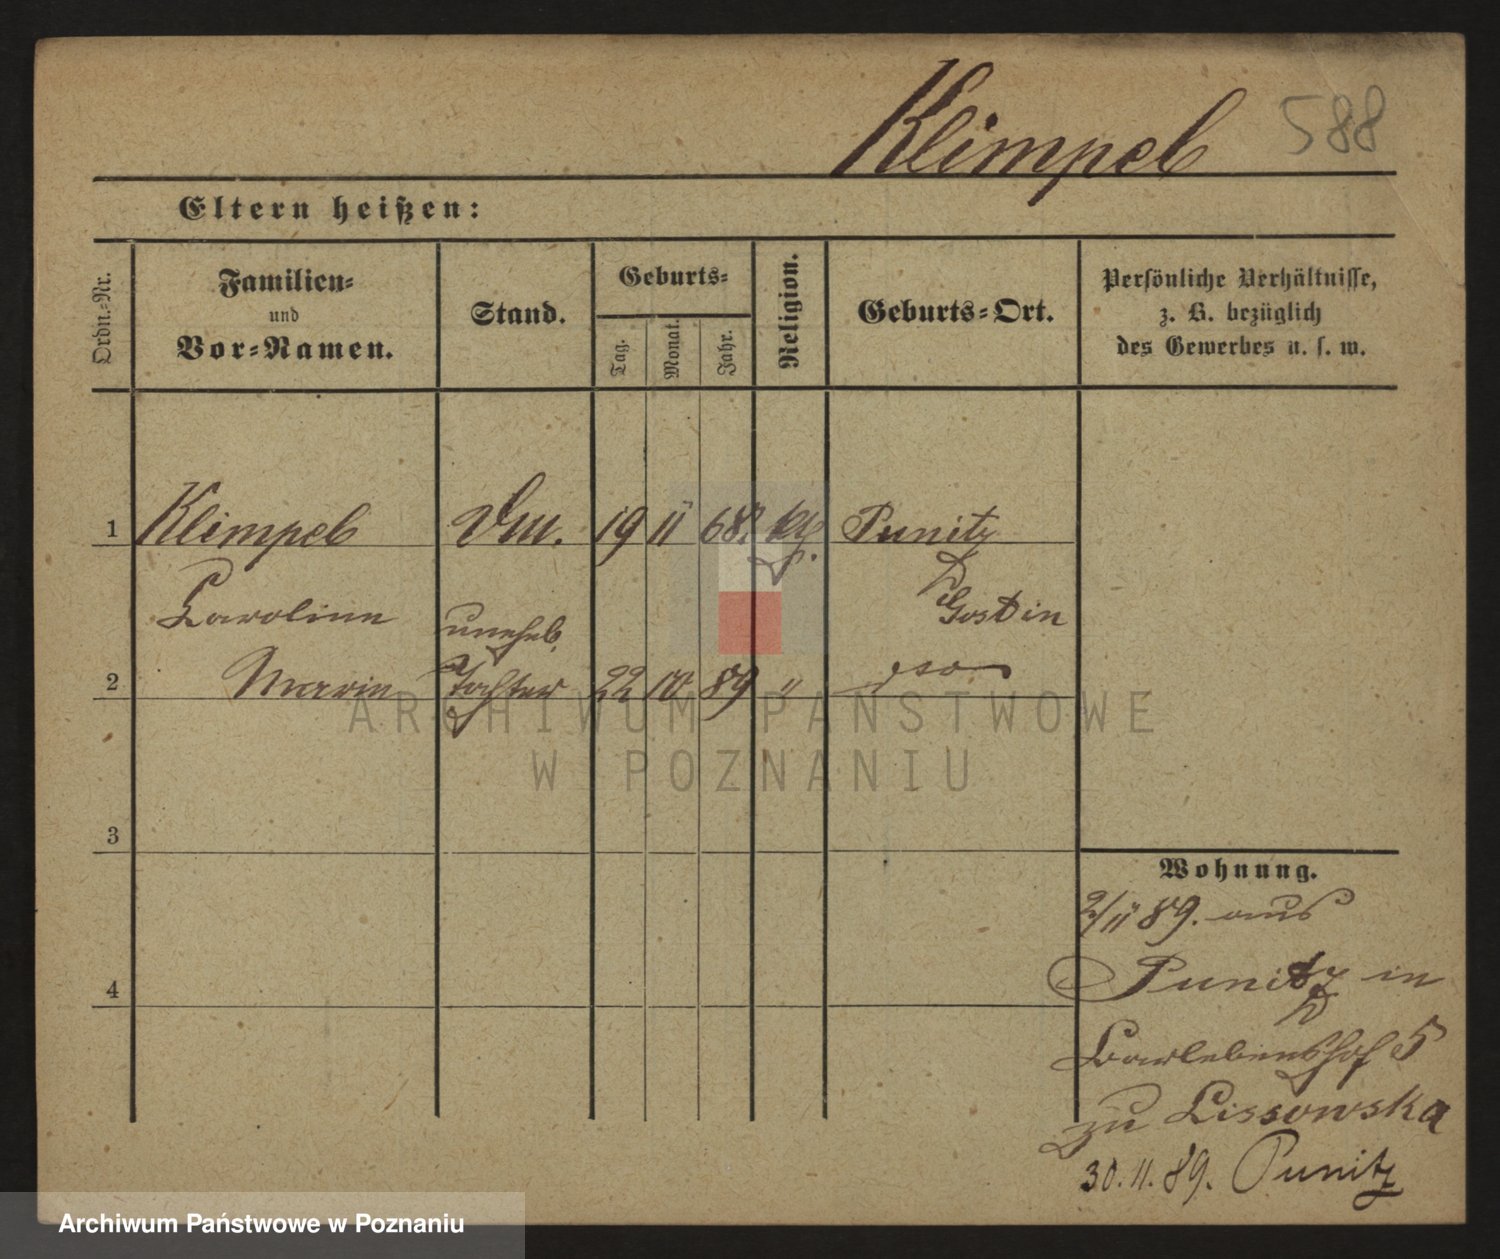 Klimpel 588
Eltern heißen:
Ordn.-Nr.
Familien-
und
Vor-Namen.
Stand.
Geburts-
Tag.
Monat.
Jahr.
Religion.
Geburts-Ort.
Persönliche Verhältnisse,
z. B. bezüglich
des Gewerbes u. s. w.
1 Klimpel 19 11 68. kth. Punitz
Caroline Gostin
unehel.
2 Marie Tochter 22 10 89 "
ARCHIWUM PAŃSTWOWE
W POZNANIU
3
Wohnung.
2/11 89. aus
4 Punitz in
Barlebenshof 5
zu Lissowska
30.11.89. Punitz
Archiwum Państwowe w Poznaniu